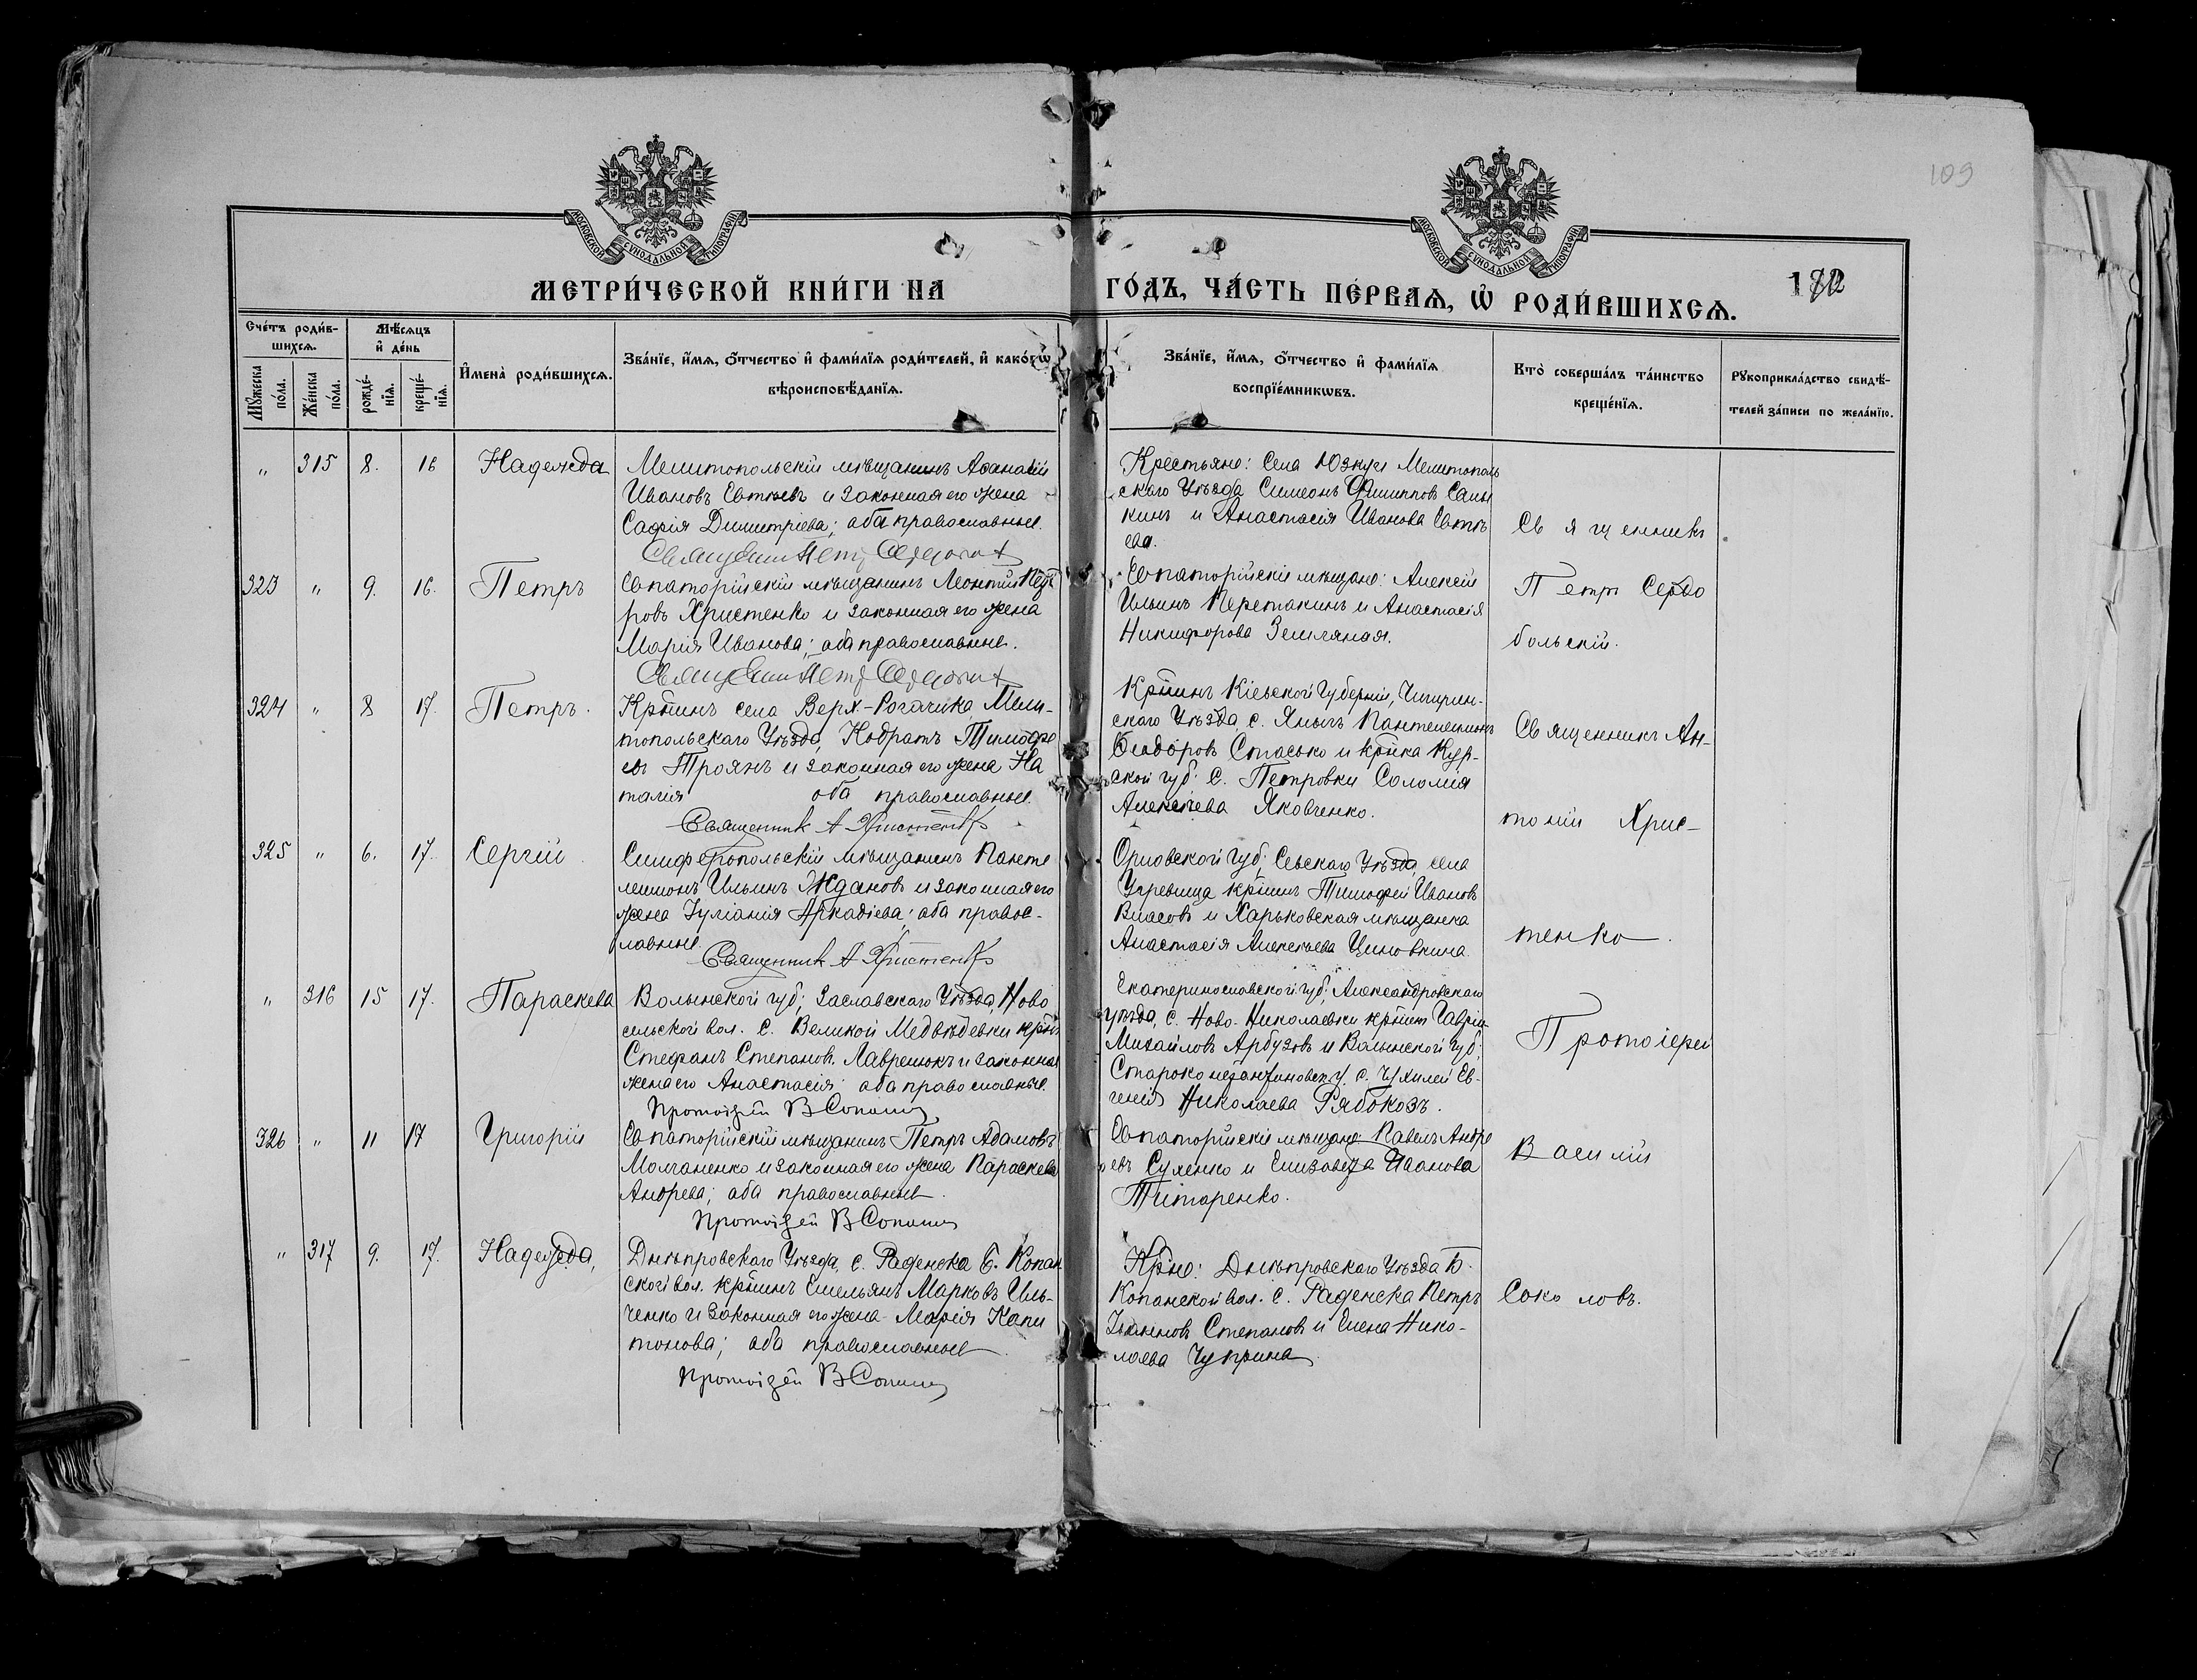 109
МОСКОВСКОЙ СѴНОДАЛЬНОЙ ТИПОГРАФІИ
МОСКОВСКОЙ СѴНОДАЛЬНОЙ ТИПОГРАФІИ
МЕТРИ́ЧЕСКОЙ КНИ́ГИ НА ГО́ДЪ, ЧА́СТЬ ПЕ́РВАѦ, Ѽ РОДИ́ВШИХСѦ.
Сче́тъ роди́в-
шихсѧ.
Мꙋ́жеска
по́ла.
Же́нска
по́ла.
Мѣ́сѧцъ
и҆ де́нь
рожде́-
нїѧ.
креще́-
нїѧ.
И҆мена̀ роди́вшихсѧ.
Зва́нїе, и҆́мѧ, ѻ҆́тчество и҆ фами́лїѧ роди́телей, и҆ како́гѡ
вѣроисповѣ́данїѧ.
Зва́нїе, и҆́мѧ, ѻ҆́тчество и҆ фами́лїѧ
воспрїе́мникѡвъ.
Кто̀ соверша́лъ та́инство
креще́нїѧ.
Рꙋкоприкла́дство свидѣ́-
телей за́писи по жела́нїю.
„ 315 8. 16 Надежда
Мелитопольскій мѣщанинъ Аѳанасій
Ивановъ Евтѣевъ и законная его жена
Софія Димитріева; оба православные.
Крестьяне: Села Юзкуи Мелитополь
скаго Уѣзда Симеонъ Филипповъ
и Анастасія Иванова Евтѣ
ева.
Священникъ
Петръ Сердо
больскій.
323 „ 9. 16. Петръ
Евпаторійскій мѣщанинъ Леонтій Пет
ровъ Христенко и законная его жена
Марія Иванова; оба православные.
Евпаторійскіе мѣщане: Алексѣй
Ильинъ Перетакинъ и Анастасія
Никифорова Земляная.
324 „ 8 17. Петръ.
Кр҃тинъ села Верх.-Рогачика Мели-
топольскаго Уѣзда, Кодратъ Тимофе
евъ Троянъ и законная его жена На
талія оба православные.
Священник А Христенко
Кр҃тинъ Кіевской Губерніи, Чигирин-
скаго Уѣзда с. Янычъ Пантелеимонъ
Ѳеодоровъ Стасько и кр҃тка Кур-
ской губ. с. Петровки Соломія
Алексѣева Яковченко.
Священникъ Ан-
тоній Хрис-
тенко.
325 „ 6. 17. Сергій
Симферопольскій мѣщанинъ Панте
леимонъ Ильинъ Ждановъ и законная его
жена Іуліанія Аркадіева; оба право-
славные.
Священник А Христенко
Орловской Губ; Сѣвскаго Уѣзда, села
кр҃тинъ Тимофей Ивановъ
Власовъ и Харьковская мѣщанка
Анастасія Алексѣева Циновкина.
„ 316 15 17. Параскева
Волынской губ; Заславскаго Уѣзда, Ново
сельской вол. с. Великой Медвѣдевки кр҃т.
Стефанъ Степановъ Лавренюкъ и законная
жена его Анастасія; оба православные.
Протоіерей В Соколовъ
Екатеринославской губ; Александровскаго
уѣзда, с. Ново-Николаевки кр҃тин Гаврі
Михайловъ Арбузовъ и Волынской Губ;
Староконстантиновск. у. с. Чухилей Ев-
генія Николаева Рябоконь.
Протоіерей
Василій
Соколовъ.
326 „ 11 17 Григорій
Евпаторійскій мѣщанинъ Петръ Адамовъ
Молчаненко и законная его жена Параскева
Андреева; оба православные.
Протоіерей В Соколовъ
Евпаторійскіе мѣщане Павелъ Андре
евъ Сухенко и Елизавета Иванова
Титаренко.
„ 317 9. 17. Надежда,
Днѣпровскаго Уѣзда, с. Раденска Б. Копан
ской вол. кр҃тинъ Емельянъ Марковъ Иль-
ченко и законная его жена Марія Капи
тонова; оба православные
Протоіерей В Соколовъ
Кр҃не: Днѣпровскаго Уѣзда Б.
Копанской вол. с. Раденска Петръ
Іоанновъ Степановъ и Елена Нико-
лаева Чуприна